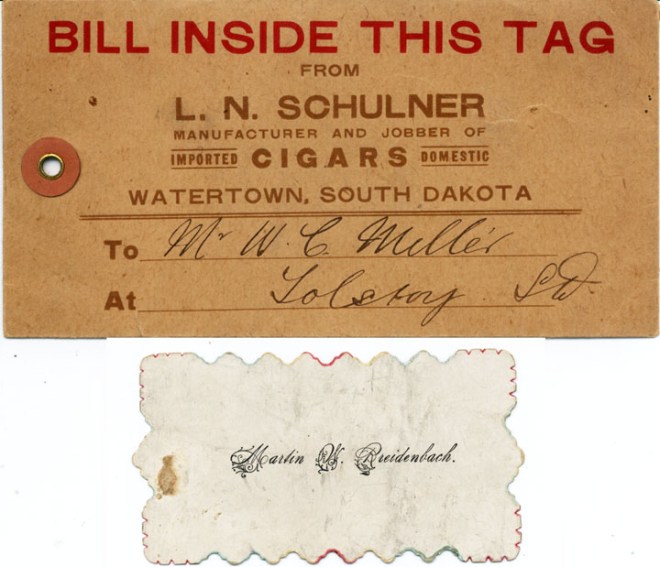 BILL INSIDE THIS TAG
FROM
L. N. SCHULNER
MANUFACTURER AND JOBBER OF
IMPORTED CIGARS DOMESTIC
WATERTOWN, SOUTH DAKOTA
To Mr W. C. Miller
At Tolstoy S.D.
Martin W. Breidenbach.